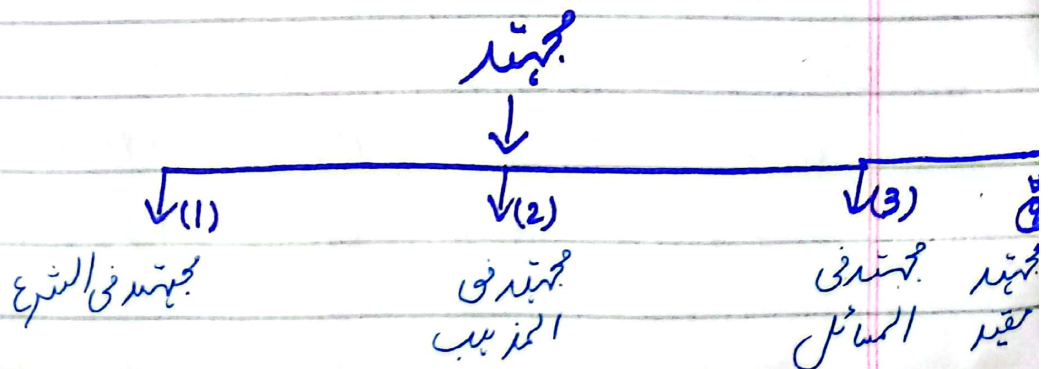 مجتہد
(1)
مجتہد فی الشرع
(2)
مجتہد فی
المذہب
(3)
مجتہد فی
المسائل
مجتہد
مقید